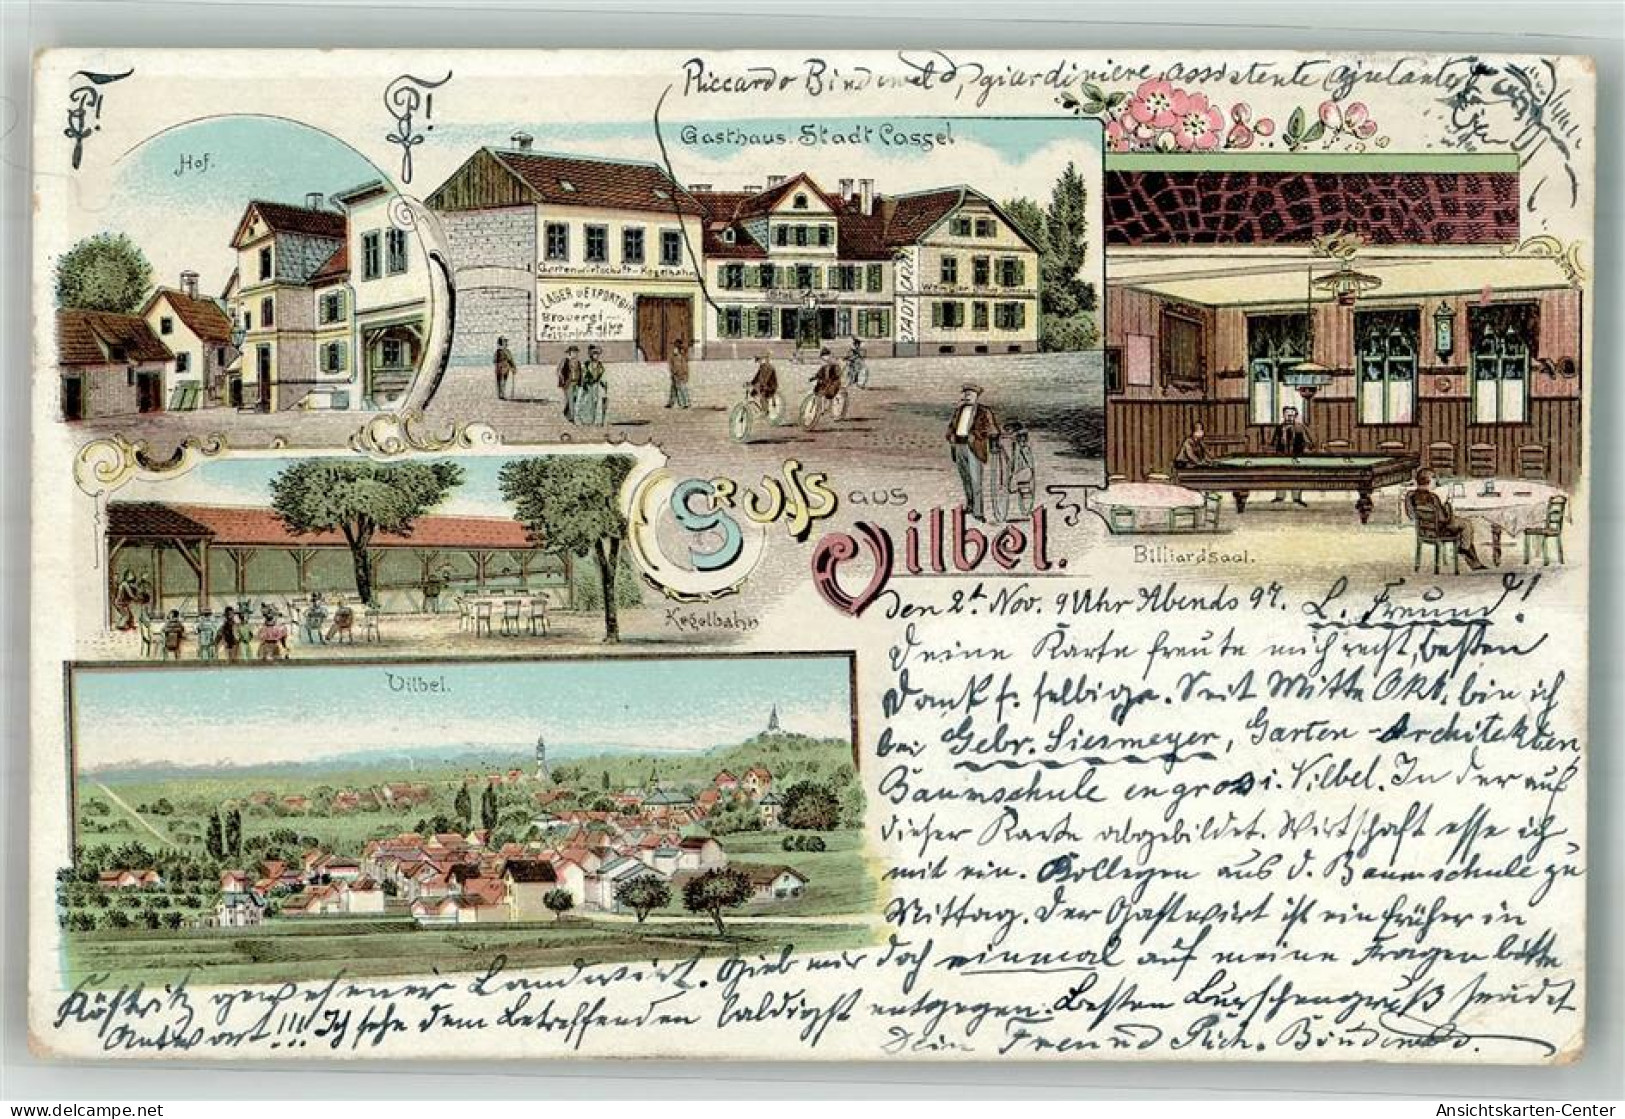 Riccardo Bindewald, giardiniere, assistente ajutante
Hof.
Gasthaus. Stadt Cassel
Gartenwirtschaft - Kegelbahn
LAGER U EXPORTBIER
der
Brauerei
STADT CASSEL
GRUSS aus
Vilbel.
Billiardsaal.
Kegelbahn
Vilbel.
Den 2t. Nov. 9 Uhr Abends 97. L. Freund!
Deine Karte freute mich recht, besten
Dank f. selbige. Seit Mitte Okt. bin ich
bei Gebr. Siesmeyer, Garten-Architekten,
Baumschule en gros i. Vilbel. In der auf
dieser Karte abgebildet. Wirtschaft esse ich
mit ein. Kollegen aus d. Baumschule zu
Mittag. Der Gastwirt ist ein früher in
Köstritz gewesener Landwirt. Gieb mir doch einmal auf meine Fragen bitte
Antwort!!! Ich sehe dem Betreffenden baldigst entgegen. Besten Burschengruß sendet
Dein Freund Rich. Bindewald.
Ansichtskarten-Center